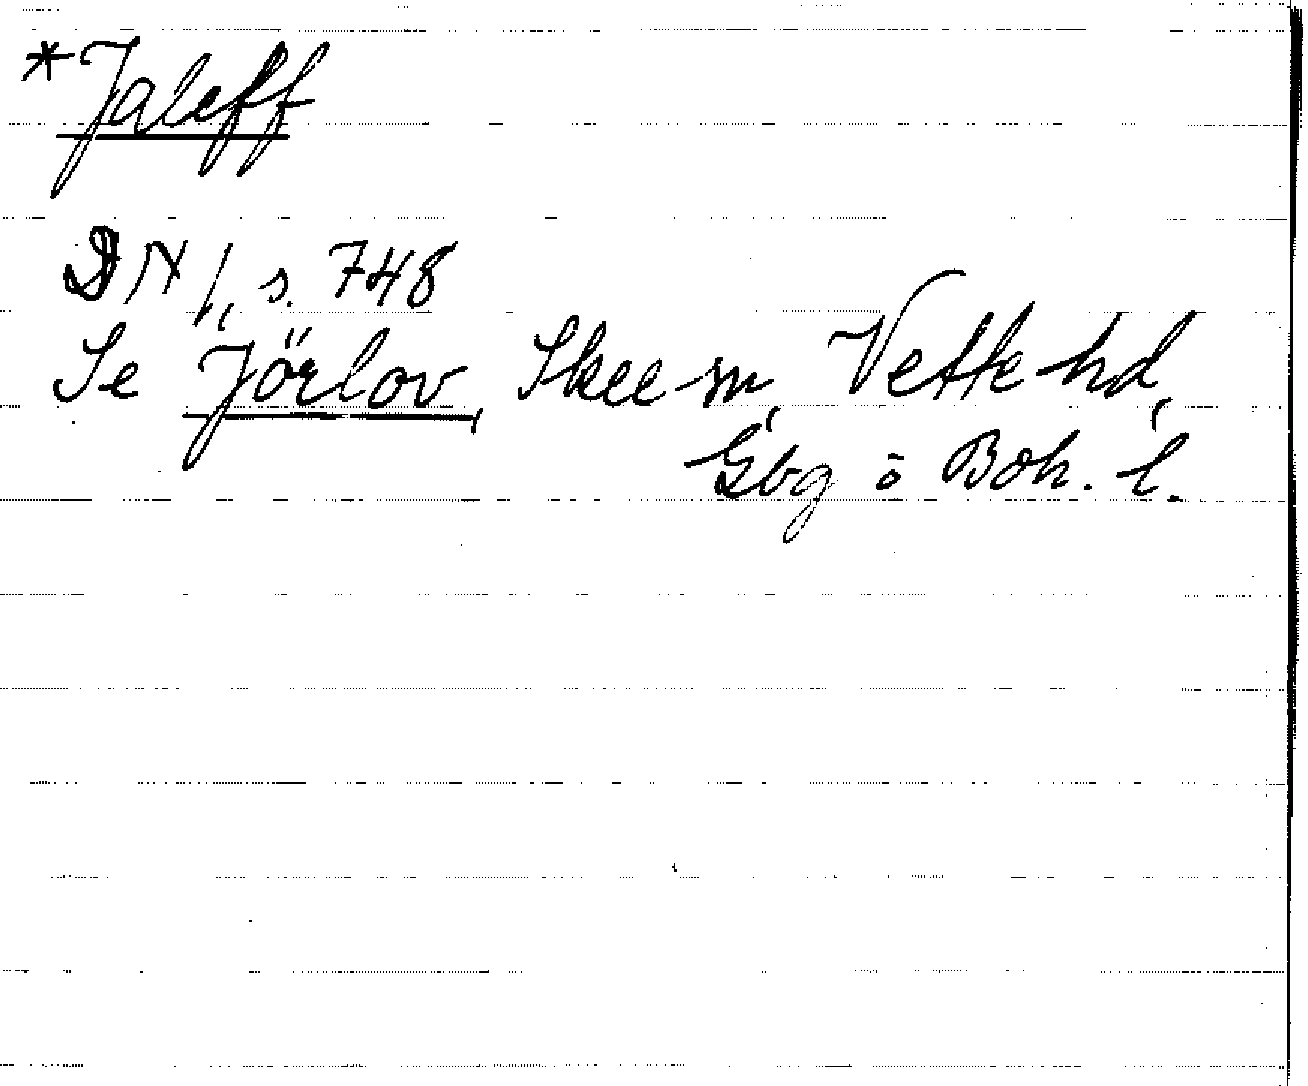 *Jaleff
DN 1, s. 748
Se Jörlov, Skee sn, Vette hd,
Gbg o Boh. l.